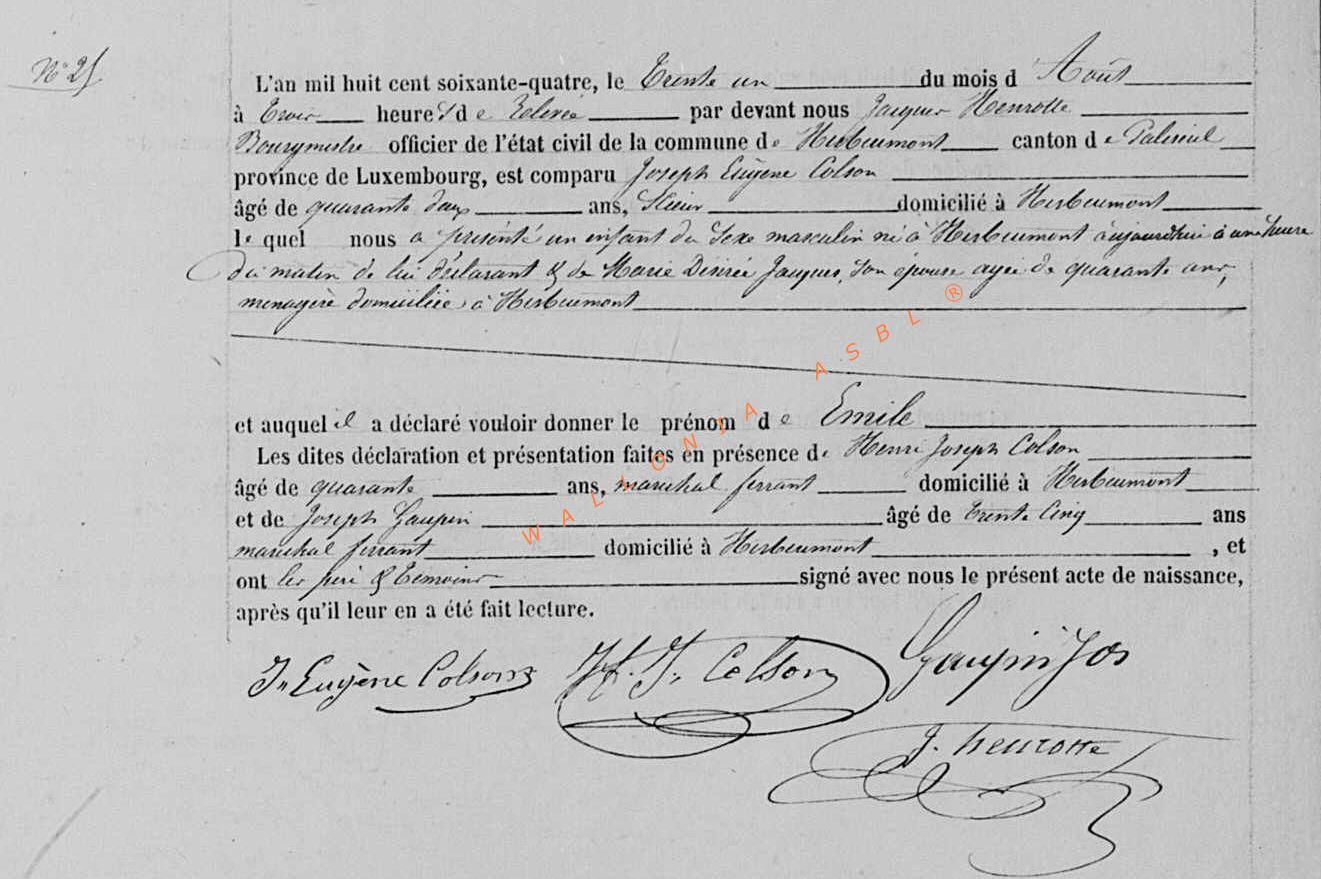 N° 25
L'an mil huit cent soixante-quatre, le Trente un du mois d'Août
à Trois heures de Relevée par devant nous Jacques Henrotte
Bourgmestre officier de l'état civil de la commune de Herbeumont canton de Paliseul
province de Luxembourg, est comparu Joseph Eugène Colson
âgé de quarante deux ans, domicilié à Herbeumont
le quel nous a présenté un enfant du Sexe masculin né à Herbeumont aujourdhui à une heure
du matin de lui déclarant & de Marie Désirée Jacques, son épouse agée de quarante ans,
menagère domiciliée à Herbeumont
et auquel il a déclaré vouloir donner le prénom de Emile
Les dites déclaration et présentation faites en présence de Henri Joseph Colson
âgé de quarante ans, marechal ferrant domicilié à Herbeumont
et de Joseph Gaupin âgé de trente Cinq ans
marechal ferrant domicilié à Herbeumont, et
ont les peré & Temoins signé avec nous le présent acte de naissance,
après qu'il leur en a été fait lecture.
J. Eugène Colson H. J. Colson Gaupin Jos
J. henrotte
WALLONIA ASBL ®